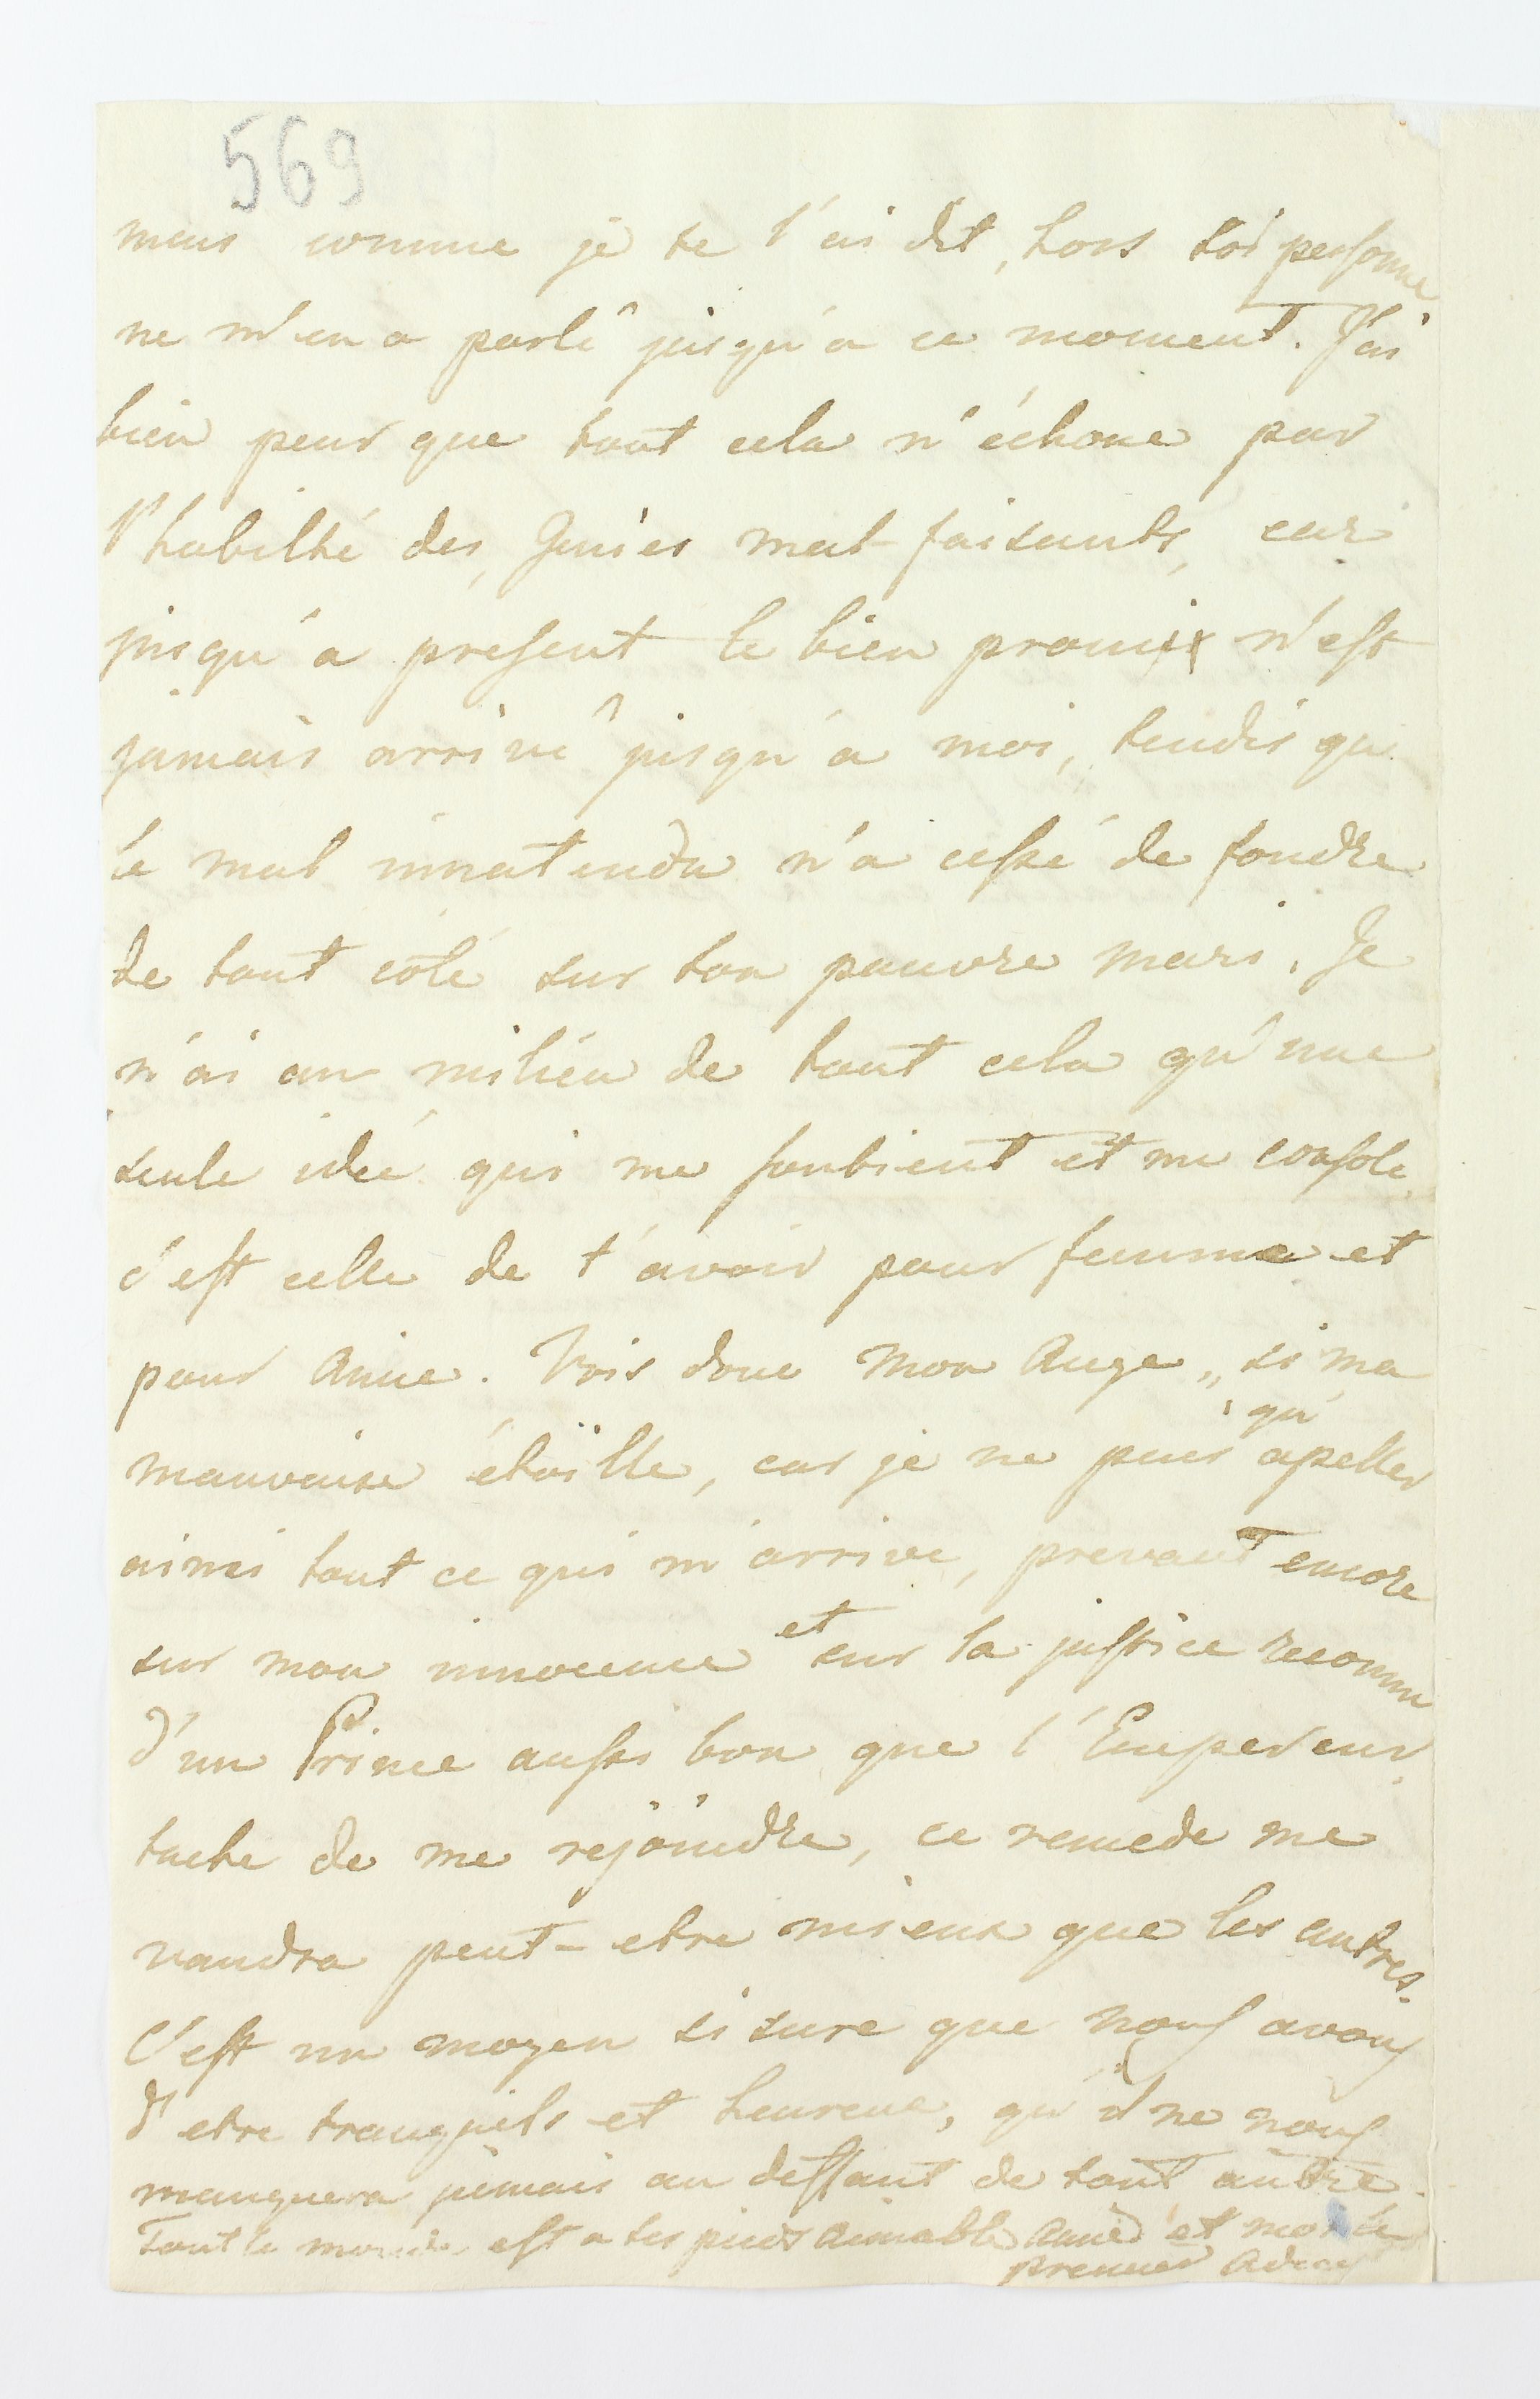 569
mais comme je te l'ai dit, hors toi personne
ne m'en a parlé jusqu'à ce moment. J'ai
bien peur que tout cela n'échoue par
l'habilté des, Genies mal-faisants, car
jusqu'a present le bien promis n'est
jamais arrivé jusqu'a moi, tendis que
le mal innatendu n'a cessé de fondre
de tout coté sur ton pauvre mari. Je
n'ai au milieu de tout cela qu'une
seule idée qui me soutient et me console
c'est celle de t'avoir pour femme et
pour Amie. Vois donc mon Ange „si ma
qu'
mauvaise étoïlle, car je ne puis apeller
ainsi tout ce qui m'arrive, prevaut encore
et
sur mon innocence sur la justice reconnu
d'un Prince aussi bon que l'Empereur
tache de me rejoindre, ce remede me
vaudra peut-etre mieux que les autres.
C'est un moyen si sure que nous avons
d'etre tranquils et heureux, qu'il ne nous
manquera jamais au deffaut de tout autre.
Tout le monde est a tes pieds Aimable Amie et moi le
premier